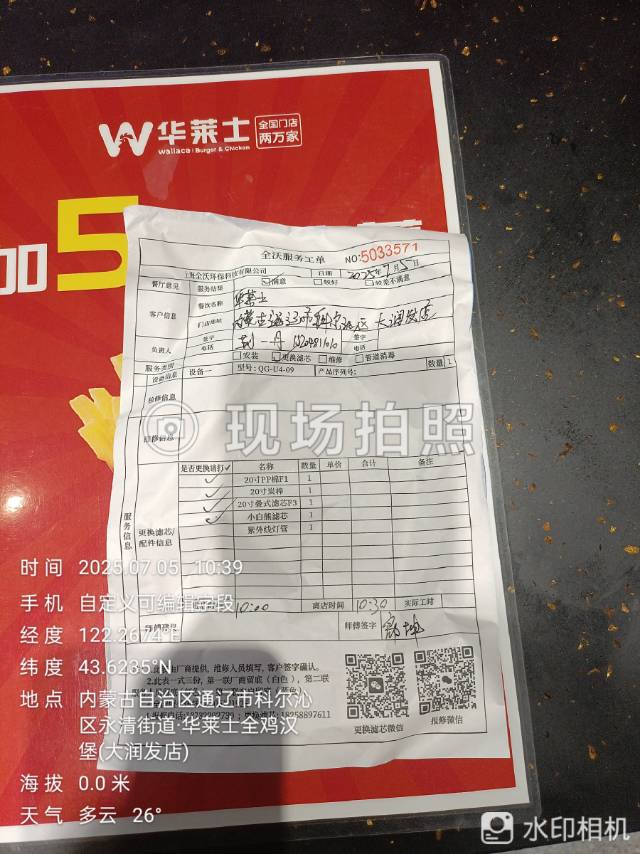 W 华莱士 全国门店 两万家
Wallace | Burger & Chicken
加5
全沃服务工单 NO:5033571
上海全沃环保科技有限公司 日期 2025年7月5日
餐厅意见 服务结果 满意 较好 较差不满意
客户信息 餐饮名称 华莱士
门店地址 内蒙古通辽市科尔沁区大润发店
负责人 签字 电话 签字 电话
服务类别 安装 更换滤芯 维修 管道消毒
设备信息 设备一 型号:QG-U4-09 产品序列号: 数量 1
检修信息
现场拍照
服务信息
是否更换请打✓ 名称 数量 单价 合计 备注
✓ 20寸PP棉F1 1
✓ 20寸炭棒 1
✓ 20寸叠式滤芯F3 1
✓ 小白熊滤芯 1
紫外线灯管 1
更换滤芯/配件信息
10:00 离店时间 10:30 实际工时
师傅签字
厂商提供,维修人员填写,客户签字确认。
2.此表一式三份,第一联厂商留底(白色),第二联
更换滤芯:18258897611
更换滤芯微信 报修微信
时间 2025.07.05 10:39
手机 自定义可编辑字段
经度 122.2674°E
纬度 43.6235°N
地点 内蒙古自治区通辽市科尔沁
区永清街道·华莱士全鸡汉
堡(大润发店)
海拔 0.0 米
天气 多云 26°
水印相机